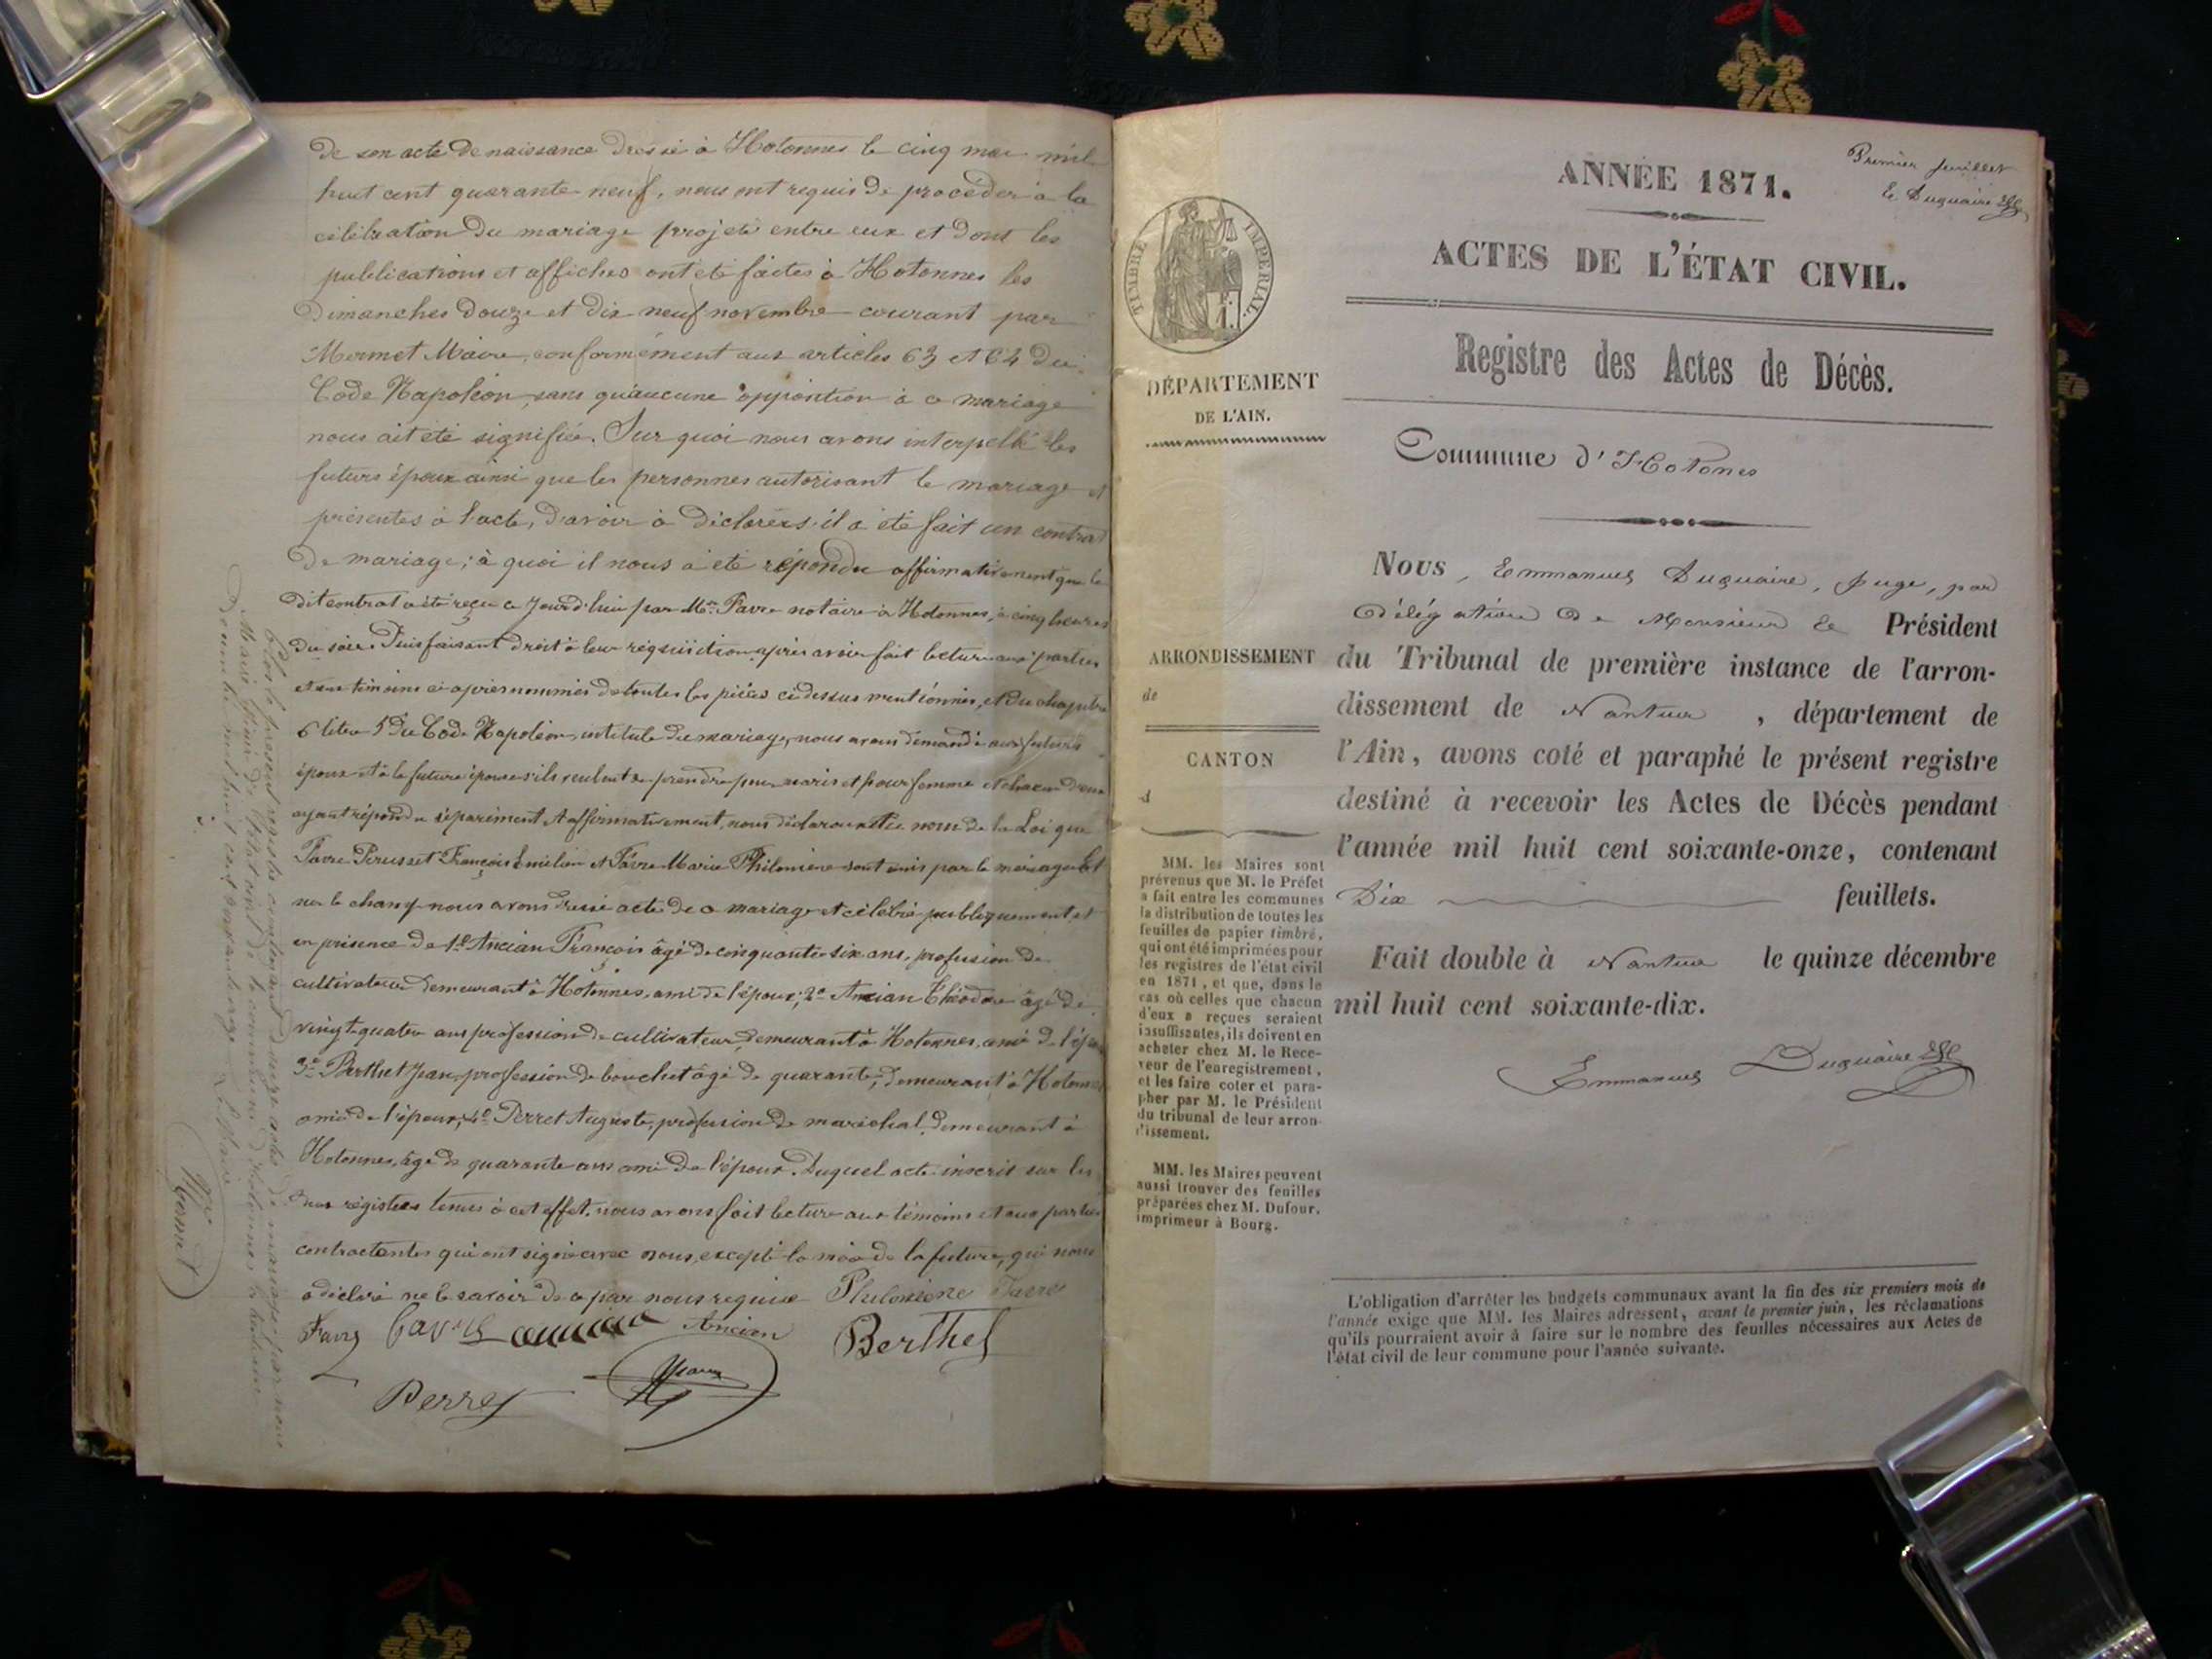 de son acte de naissance dressé à Hotonnes le cinq mai mil
huit cent quarante neuf, nous ont requis de procéder à la
célébration du mariage projeté entre eux et dont les
publications et affiches ont été faites à Hotonnes les
Dimanches douze et dix neuf novembre courant par
Mermet Maire, conformément aux articles 63 et 64 du
Code Napoléon, sans qu'aucune opposition à ce mariage
nous ait été signifiée. Sur quoi nous avons interpellé les
futurs époux ainsi que les personnes autorisant le mariage et
présentes à l'acte, d'avoir à déclarer s'il a été fait un contrat
de mariage; à quoi il nous a été répondu affirmativement que le
dit contrat a été reçu ce jourd'hui par Me Favre notaire à Hotonnes, à cinq heures
du soir. Puis faisant droit à leur réquisition après avoir fait lecture aux parties
et aux témoins ci-après nommés de toutes les pièces ci dessus mentionnées, et du chapitre
6 titre 5 du Code Napoléon, intitulé du mariage, nous avons demandé aux futurs
époux et à la future épouse s'ils veulent se prendre pour maris et pour femme et chacun d'eux
ayant répondu séparément et affirmativement, nous déclarons au nom de la Loi que
Favre Perusset François Emélien et Favre Marie Philomène sont unis par le mariage et
sur le champ nous avons dressé acte de ce mariage et célébré publiquement, et
en présence de 1° Ancian François âgé de cinquante-six ans, profession de
cultivateur demeurant à Hotonnes, ami de l'époux; 2° Ancian Théodore âgé de
vingt-quatre ans profession de cultivateur, demeurant à Hotonnes, ami de l'époux
3° Berthet Jean, profession de boucher âgé de quarante, demeurant à Hotonnes
ami de l'époux; 4° Perret Auguste, profession de maréchal, demeurant à
Hotonnes, âgé de quarante ans ami de l'époux. Duquel acte inscrit sur les
deux registres tenus à cet effet, nous avons fait lecture aux témoins et aux parties
contractantes qui ont signé avec nous, excepté la mère de la future, qui nous
a déclaré ne le savoir de ce par nous requise Philomène Favre
Favre Ancian Berthet
Perret
Clos le présent registre contenant douze actes de mariage par nous
Maire officier de l'état civil de la commune d'Hotonnes le trente un
Décembre mil huit cent soixante onze
Le Maire
Mermet
Premier feuillet
E. Duquaire
ANNÉE 1871.
ACTES DE L'ÉTAT CIVIL.
Registre des Actes de Décès.
TIMBRE IMPERIAL.
DÉPARTEMENT
DE L'AIN.
Commune d'Hotones
Nous, Emmanuel Duquaire, Juge, par
délégation de Monsieur le Président
du Tribunal de première instance de l'arron-
dissement de Nantua, département de
l'Ain, avons coté et paraphé le présent registre
destiné à recevoir les Actes de Décès pendant
l'année mil huit cent soixante-onze, contenant
Dix feuillets.
Fait double à Nantua le quinze décembre
mil huit cent soixante-dix.
Emmanuel Duquaire
ARRONDISSEMENT
de
CANTON
d
MM. les Maires sont
prévenus que M. le Préfet
a fait entre les communes
la distribution de toutes les
feuilles de papier timbré,
qui ont été imprimées pour
les registres de l'état civil
en 1871, et que, dans le
cas où celles que chacun
d'eux a reçues seraient
insuffisantes, ils doivent en
acheter chez M. le Rece-
veur de l'enregistrement,
et les faire coter et para-
pher par M. le Président
du tribunal de leur arron-
dissement.
MM. les Maires peuvent
aussi trouver des feuilles
préparées chez M. Dufour,
imprimeur à Bourg.
L'obligation d'arrêter les budgets communaux avant la fin des six premiers mois de
l'année exige que MM. les Maires adressent, avant le premier juin, les réclamations
qu'ils pourraient avoir à faire sur le nombre des feuilles nécessaires aux Actes de
l'état civil de leur commune pour l'année suivante.